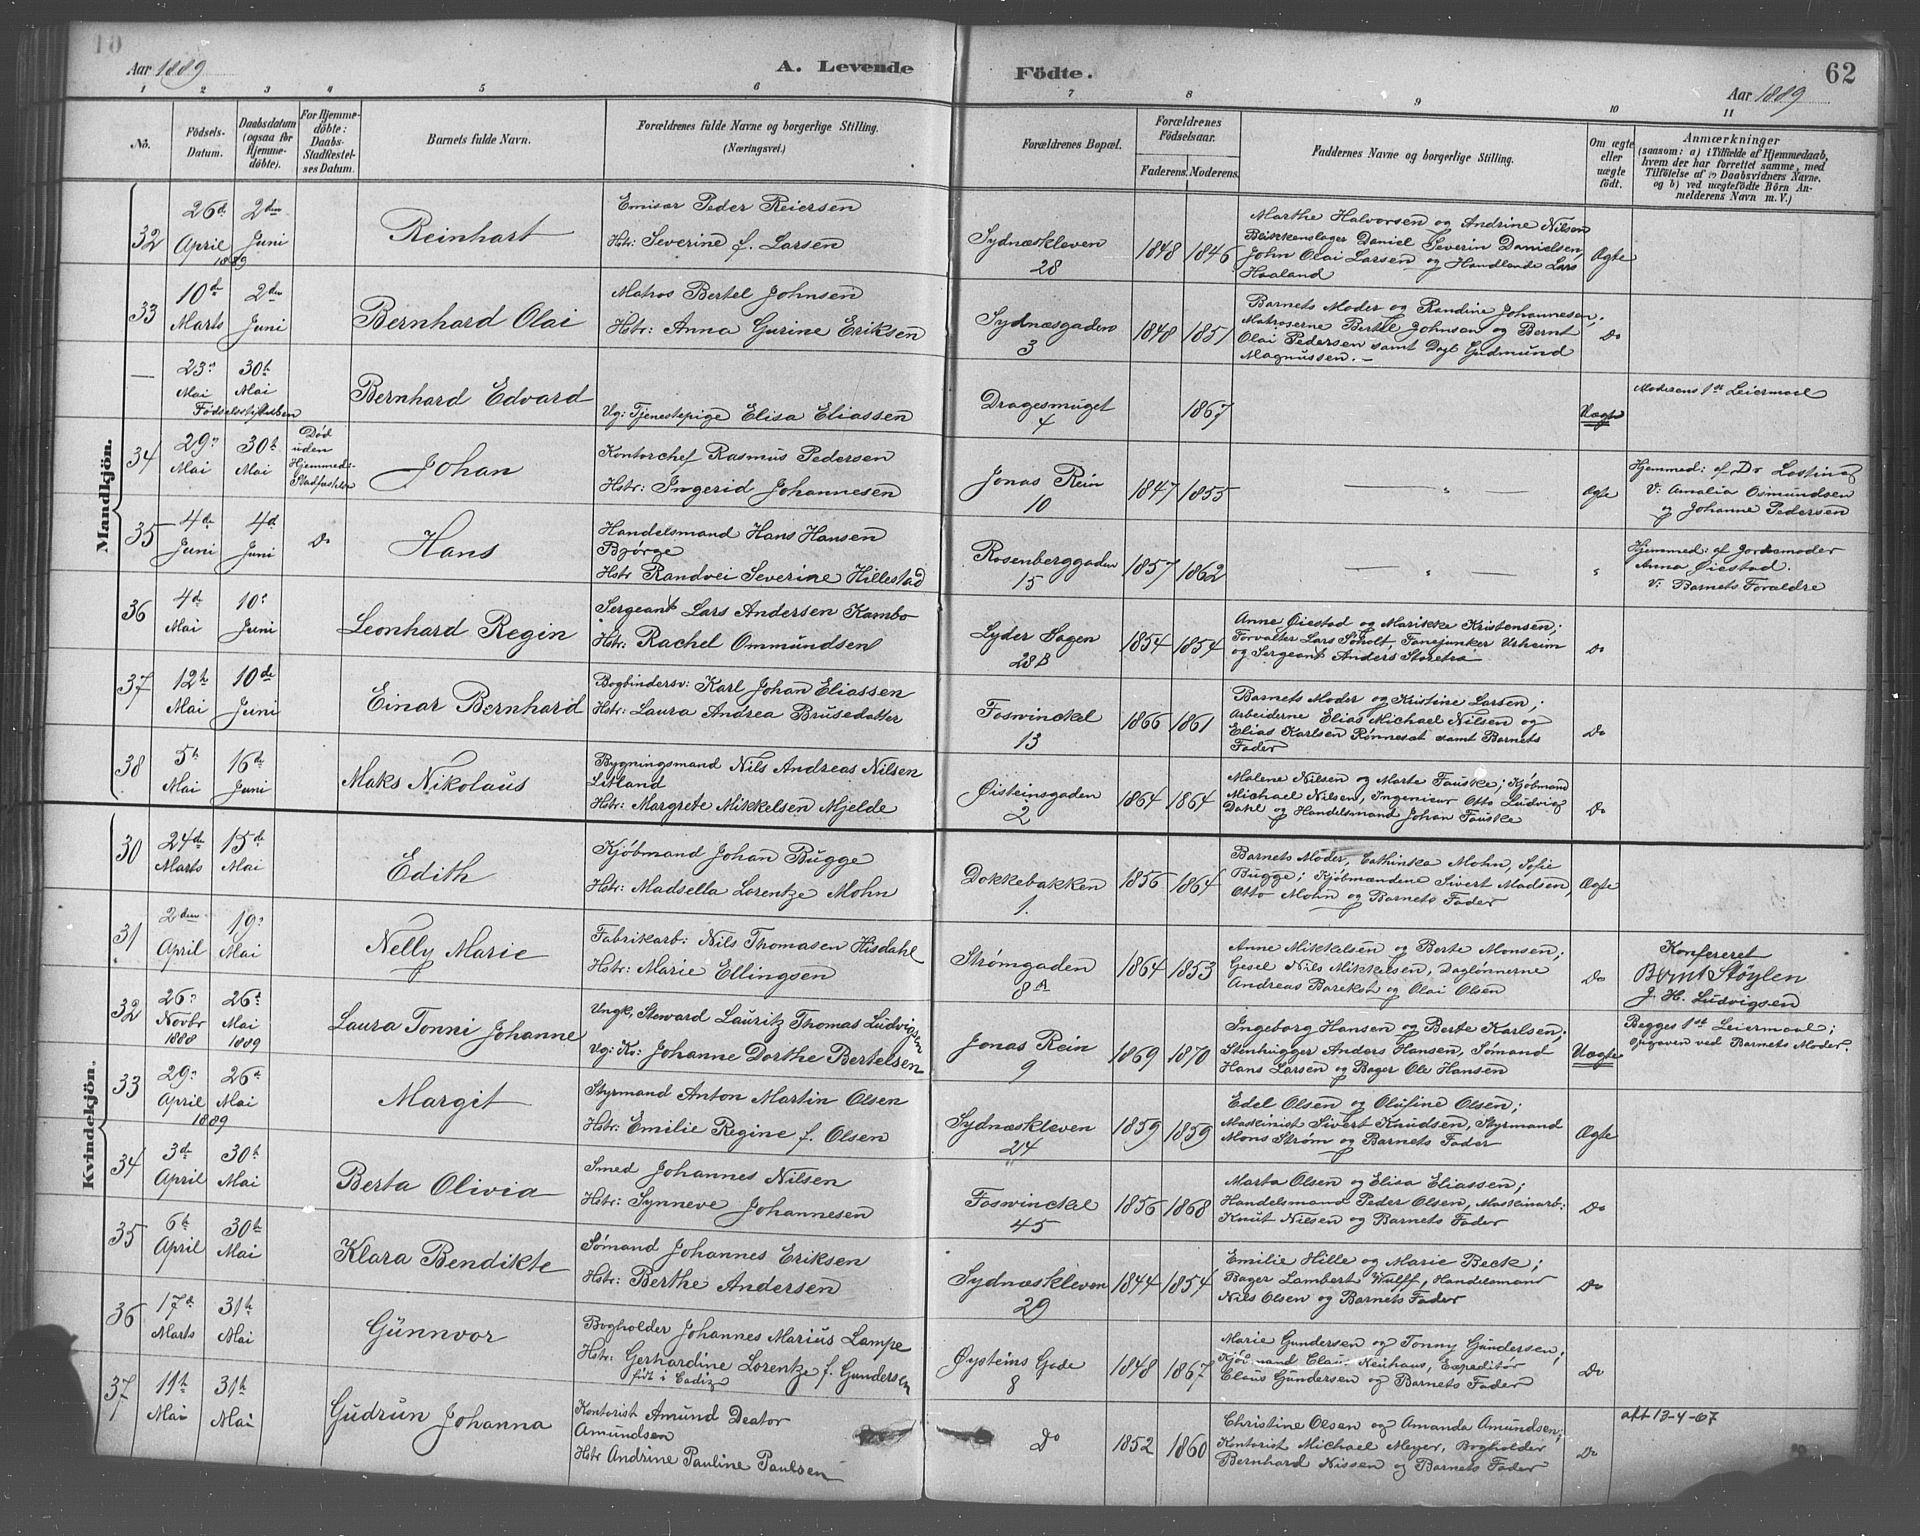 10
Aar 1889
A. Levende
Födte.
62
Aar 1889
1 2 3 4 5 6 7 8 9 10 11
No.
Födsels-
Datum.
Daabsdatum
(ogsaa for
Hjemme-
döbte).
For Hjemme-
döbte:
Daabs-
Stadfæstel-
ses Datum.
Barnets fulde Navn.
Forældrenes fulde Navne og borgerlige Stilling.
(Næringsvei.)
Forældrenes Bopæl.
Forældrenes
Födselsaar.
Faderens. Moderens.
Faddernes Navne og borgerlige Stilling.
Om ægte
eller
uægte
födt.
Anmærkninger
(saasom: a) i Tilfælde af Hjemmedaab,
hvem der har forrettet samme, med
Tilföielse af 2 Daabsvidners Navne.
og b) ved uægtefödte Börn An-
melderens Navn m. V.)
Mandkjön.
32
26de April 1889
2den Juni
Reinhart
Emisær Peder Reiersen
Hstr: Severine f. Larsen
Sydnæskleven
28
1848 1846
Marthe Halvorsen og Andrine Nilsen
Blikkenslager Daniel Severin Danielsen,
John Olai Larsen og Handlende Lars
Haaland
Ægte
33
10de Marts
2den Juni
Bernhard Olai
Matros Bertel Johnsen
Hstr: Anna Gurine Eriksen
Sydnæsgaden
3
1848 1851
Barnets Moder og Randine Johannesen;
Matroserne Bertel Johnsen og Bernt
Olai Pedersen samt Dagl Gudmund
Magnussen. —
Do
—
23' Mai
30th Mai
Födselsstiftelsen
Bernhard Edvard
Ug: Tjenestepige Elisa Eliassen
Dragesmuget
4
1867
Uægte
Moderens 1st Leiermaal
34
29' Mai
30th Mai
Död
uden
Hjemmed:
Johan
Kontorchef Rasmus Pedersen
Hstr: Ingerid Johannesen
Jonas Rein
10
1847 1855
— " —
Ægte
Hjemmed: af Dr
V: Amalia Osmundsen
og Johanne Pedersen
35
4de Juni
4d Juni
Do
Hans
Handelsmand Hans Hansen
Bjørge
Hstr Randvei Severine Hillestad
Rosenberggaden
15
1857 1862
— " —
"
Hjemmed: af Jordemoder
Anna Øiestad.
V: Barnets Foraldre
36
4d Mai
10' Juni
Leonhard Regin
Sergeant Lars Andersen Kambo
Hstr: Rachel Ommundsen
Lyder Sagen
28B
1854 1854
Anne Øiestad og Marikke Kristensen;
Forvalter Lars Søholt, Fanejunker Urheim
og Sergeant Anders Storetra
Do
37
12th Mai
10de Juni
Einar Bernhard
Bogbindersv: Karl Johan Eliassen
Hstr: Laura Andrea Brusedatter
Foswinckel
13
1866 1861
Barnets Moder og Kristine Larsen;
Arbeiderne Elias Michael Nilsen og
Elias Karlsen Rønneset samt Barnets
Fader
Do
38
5th Mai
16de Juni
Maks Nikolaus
Bygningsmand Nils Andreas Nilsen
Litland
Hstr: Margrete Mikkelsen Mjelde
Øisteinsgaden
2
1864 1864
Malene Nilsen og Marte Fauske; Kjöbmand
Michael Nilsen, Ingenieur Otto Ludvig
Dahl og Handelsmand Johan Fauske
Do
Kvindekjön.
30
24de Marts
15de Mai
Edith
Kjöbmand Johan Bugge
Hstr: Madsella Lorentze Mohn
Dokkebakken
1.
1856 1864
Barnets Moder, Cathinka Mohn, Sofie
Bugge; Kjöbmændene Sivert Madsen,
Otto Mohn og Barnets Fader
Ægte
31
2den April
19' Mai
Nelly Marie
Fabrikarb: Nils Thomasen Hisdahl
Hstr: Marie Ellingsen
Strømgaden
8A
1864 1853
Anne Mikkelsen og Berte Monsen;
Gesel Nils Mikkelsen, Daglönnerne
Andreas Barekst og Olai Olsen
Do
Konfereret
Bernt Støylen
J. H. Ludvigsen
32
26' Novbr 1888
26d Mai 1889
Laura Tonni Johanne
Ungk, Steward Lauritz Thomas Ludvigsen
Ug: Kv: Johanne Dorthe Bertelsen
Jonas Rein
9
1869 1870
Ingeborg Hansen og Berte Karlsen;
Stenhugger Anders Hansen, Sømand
Hans Larsen og Bager Ole Hansen
Uægte
Begges 1st Leiermaal;
opgaven ved Barnets Moder.
33
29' April 1889
26d Mai
Margit
Styrmand Anton Martin Olsen
Hstr: Emilie Regine f. Olsen
Sydnæskleven
24
1859 1859
Edel Olsen og Olufine Olsen;
Maskinist Sivert Knudsen, Styrmand
Mons Strøm og Barnets Fader
Ægte
34
3d April
30th Mai
Berta Olivia
Smed Johannes Nilsen
Hstr: Synneve Johannesen
Foswinckel
45
1856 1868
Marta Olsen og Elisa Eliassen;
Handelsmand Peder Olsen, Maskinarb:
Knut Nilsen og Barnets Fader
Do
35
6th April
30th Mai
Klara Bendikte
Sømand Johannes Eriksen
Hstr: Berthe Andersen
Sydnæskleven
29
1844 1854
Emilie Hille og Marie Beck;
Bager Lambert Wulff, Handelsmand
Nils Olsen og Barnets Fader
Do
36
17d Marts
31th Mai
Günnvor
Bogholder Johannes Marius Lampe
Hstr: Gerhardine Lorentze f. Gundersen
født i Cadiz
Øysteins Gade
8
1848 1867
Marie Gundersen og Tonny Gundersen;
Kjöbmand Claus Neuhaus, Expeditör
Claus Gundersen og Barnets Fader
Do
37
11th Mai
31th Mai
Gudrun Johanna
Kontorist Amund Deator
Amundsen
Hstr Andrine Pauline Paulsen
Do
1852 1860
Christine Olsen og Amanda Amundsen;
Kontorist Michael Meyer, Bogholder
Bernhard Nissen og Barnets Fader
Do
aft 13-4-07